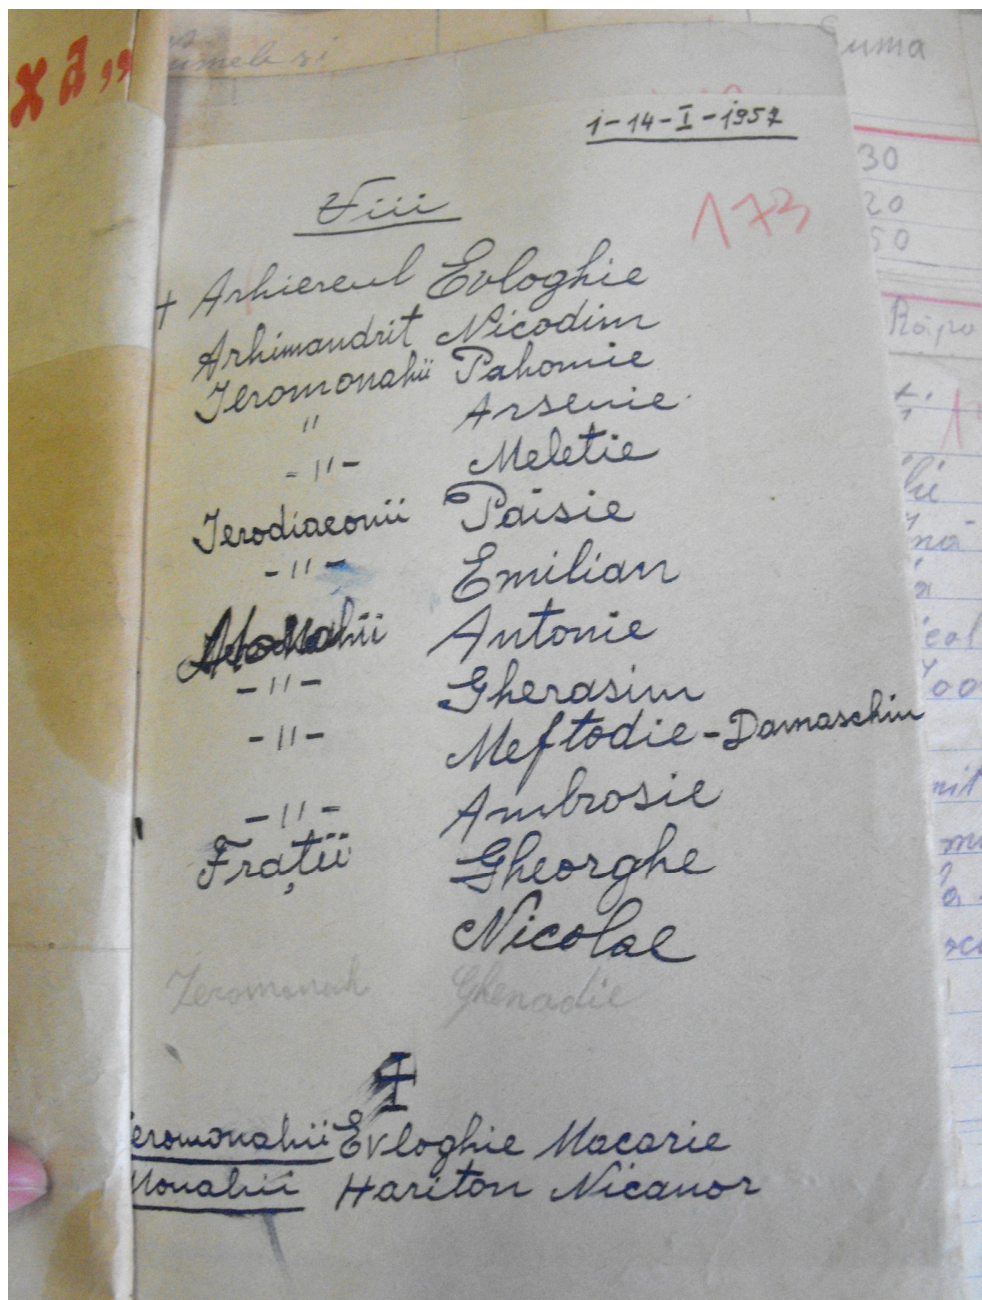 xă,,
umele și
Suma
1-14-I-1957
30
20
50
Viii
173
+ Arhiereul Evloghie
Arhimandrit Nicodim
Ieromonahii Pahomie
" Arsenie
-"- Meletie
Ierodiaconii Paisie
-"- Emilian
Monahii Antonie
-"- Gherasim
-"- Meftodie-Damaschin
-"- Ambrosie
Frații Gheorghe
Nicolae
Ieromonah Ghenadie
+
eromonahii Evloghie Macarie
Monahii Hariton Nicanor